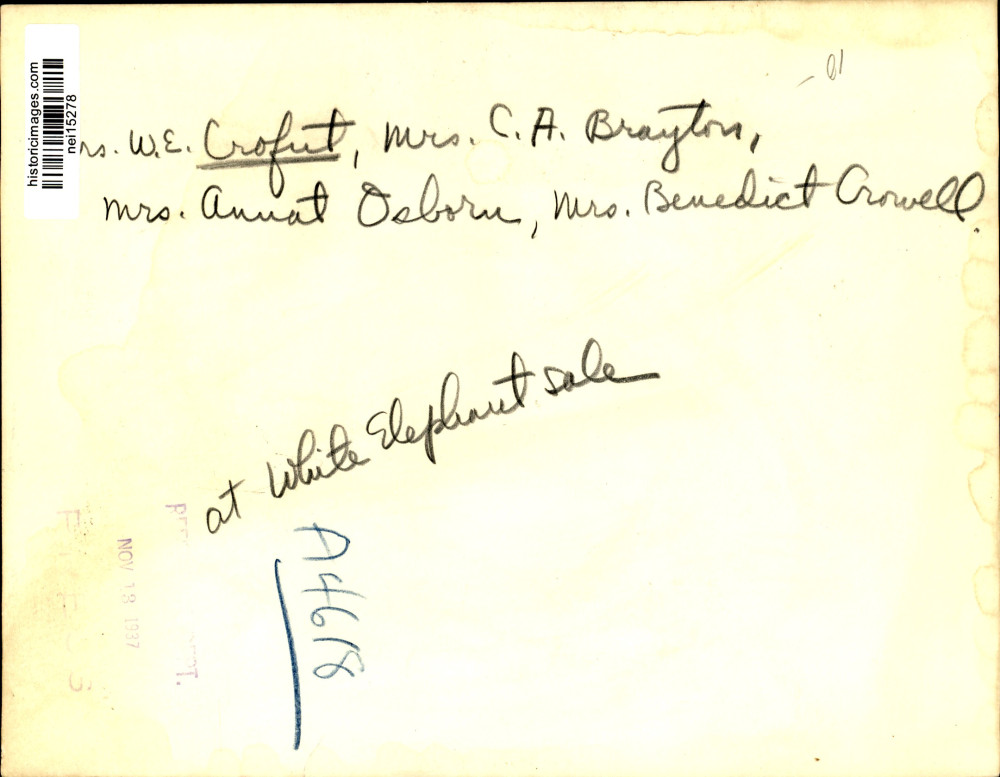 historicimages.com
nei15278
rs. W.E. Crofut, Mrs. C. A. Brayton,
Mrs. Annat Osborn, Mrs. Benedict Crowell.
at White Elephant sale
A4618
NOV 18 1937